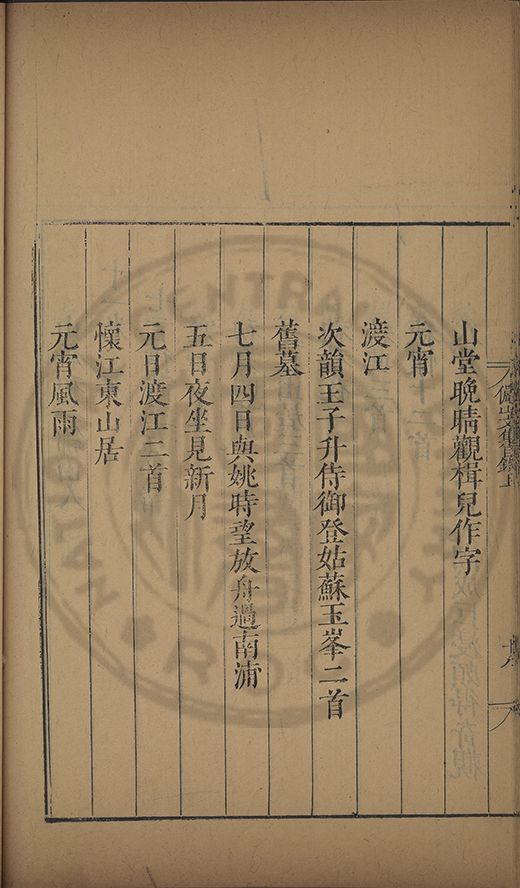 山堂晚晴觀楫兒作字
元宵
渡江
次韻王子升侍御登姑蘇玉峯二首
舊墓
七月四日與姚時望放舟過南浦
五日夜坐見新月
元日渡江二首
懷江東山居
元宵風雨